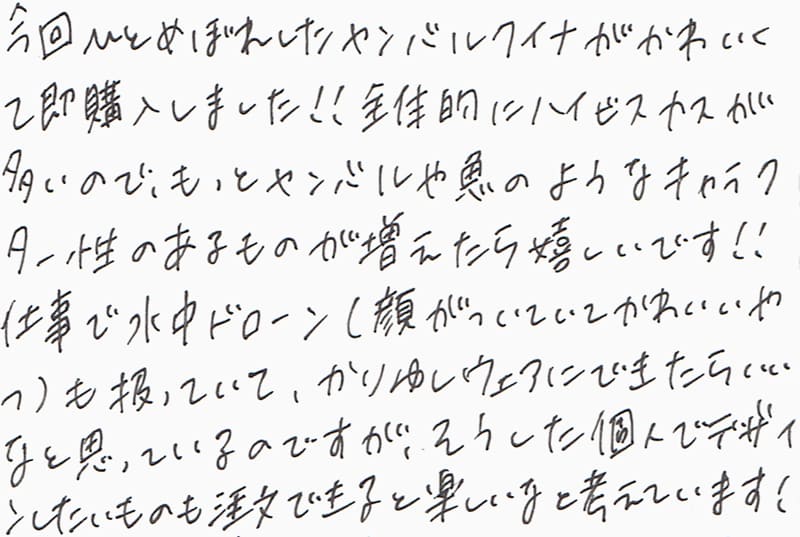 今回ひとめぼれしたヤンバルクイナがかわいく
て即購入しました!! 全体的にハイビスカスが
多いので、もっとヤンバルや魚のようなキャラク
ター性のあるものが増えたら嬉しいです!!
仕事で水中ドローン(顔がついていてかわいいや
つ)も扱っていて、かりゆしウェアにできたらいい
なと思っているのですが、そうした個人でデザイ
ンしたいものも注文できると楽しいなと考えています!